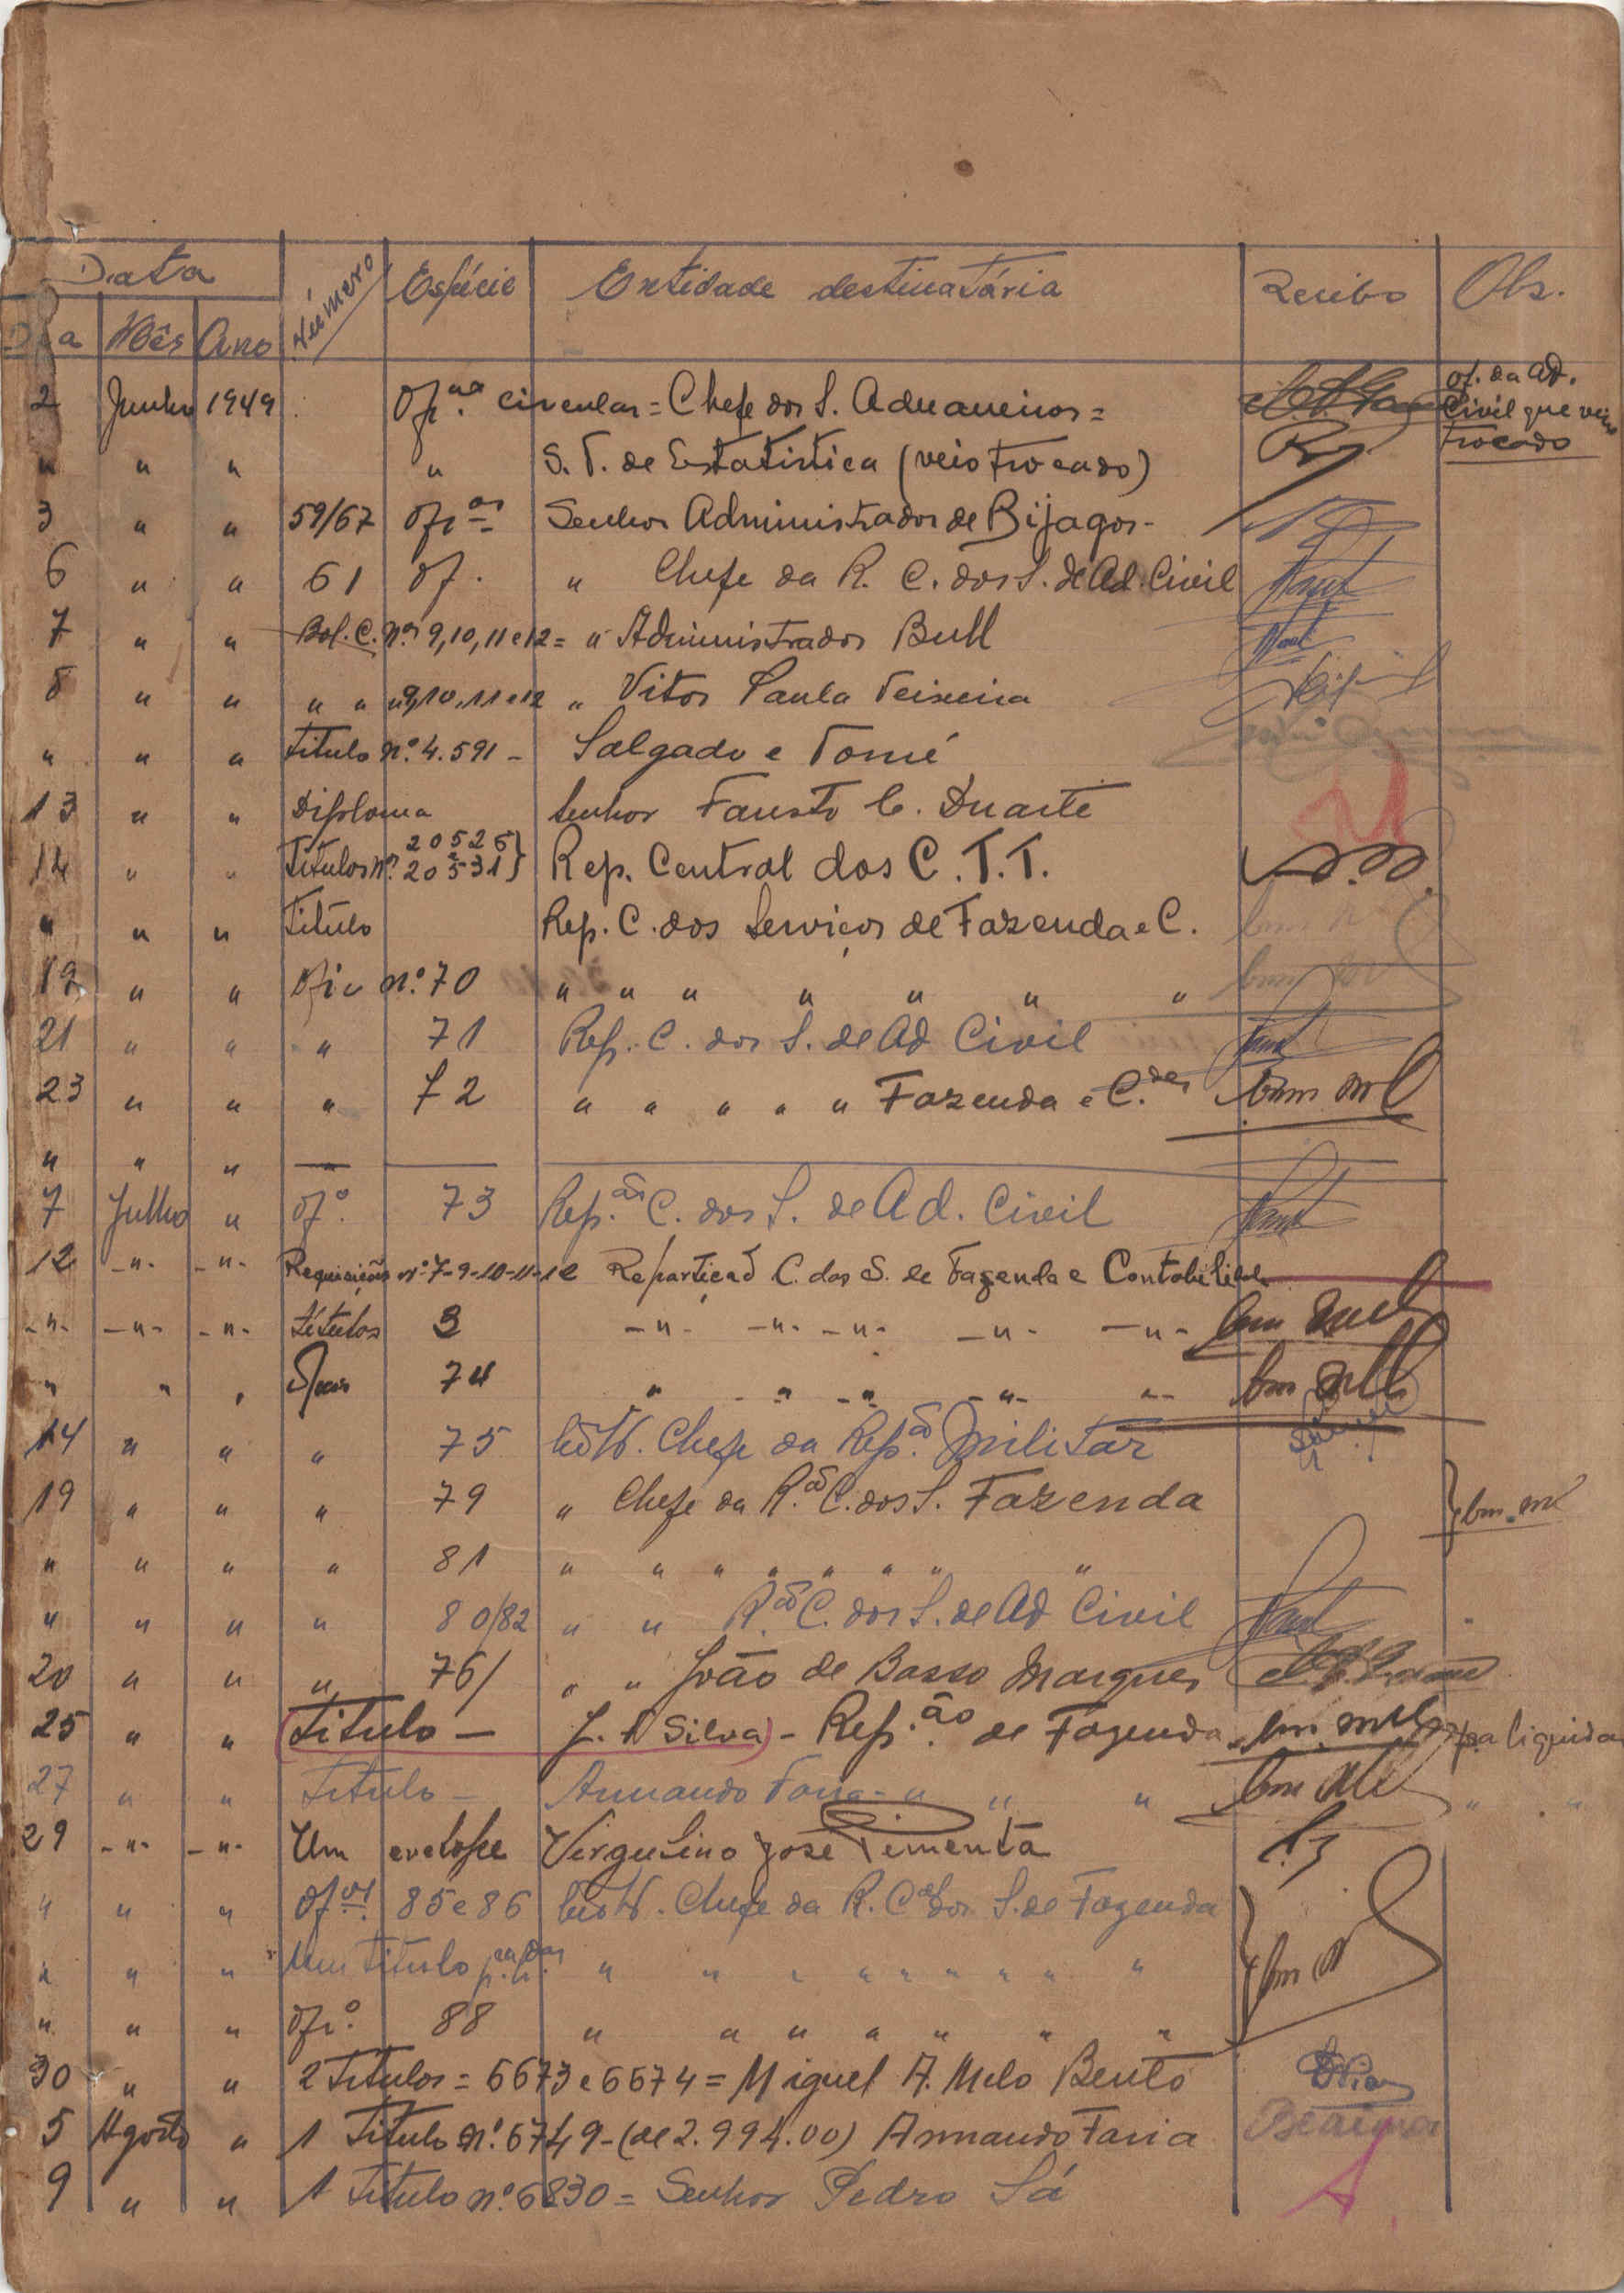 Data Número Espécie Entidade destinatária Recibo Obs.
Dia Mês Ano
2 Junho 1949 Of. circular = Chefe dos S. Aduaneiros = of. da Ad. Civil que veio trocado
" " " " S. T. de Estatistica (veio trocado)
3 " " 59/67 Of.os Senhor Administrador de Bijagos -
6 " " 61 Of. " Chefe da R. C. dos S. de Ad. Civil
7 " " Bol. C. nos 9, 10, 11 e 12 = " Administrador Bull
8 " " " " " 9, 10, 11 e 12 " Vitor Paula Teixeira
" " " Titulo nº 4.591 - Salgado e Tomé
13 " " Diploma Senhor Fausto C. Duarte
14 " " Titulos nº 20525 20531} Rep. Central dos C.T.T.
" " " Titulo Rep. C. dos Serviços de Fazenda e C.
19 " " Ofic nº 70 " " " " " " "
21 " " " 71 Rep. C. dos S. de Ad Civil
23 " " " 72 " " " " " Fazenda e C.des
" " " — —
7 Julho " Ofº. 73 Rep.ão C. dos S. de Ad. Civil
12 -"- -"- Requisições nº 7-9-10-11-12 Repartição C. dos S. de Fazenda e Contabilidade
-"- -"- -"- Titulos 3 -"- -"- -"- -"- -"-
" " " 74 " " -"- -"- "-
14 " " " 75 Chefe da Rep.ão Militar
19 " " " 79 " Chefe da R.ão C. dos S. Fazenda
" " " " 81 " " " " " " " "
" " " " 80/82 " " R.ão C. dos S. de Ad Civil
20 " " " 76/ " " João de Basso Marques
25 " " (Titulo — J. A Silva) - Rep.ão de Fazenda pa liquidar
27 " " Titulo - Armando Faria - " " " " "
29 -"- -"- Um evelope Virgulino José Pimenta
" " " Of.os 85 e 86 Chefe da R. C. dos S. de Fazenda
" " " Um titulo " " " " " " " " "
" " " Ofiº. 88 " " " " " " "
30 " " 2 Titulos = 6673 e 6674 = Miguel A. Melo Bento
5 Agosto " 1 Titulo nº. 6749 - (de 2.994.00) Armando Faria
9 " " 1 Titulo nº. 6830 = Senhor Pedro Sá